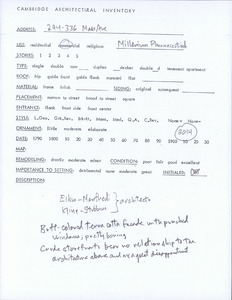 CAMBRIDGE ARCHITECTURAL INVENTORY
ADDRESS: 294-336 Mass Ave
USE: residential commercial religious Millennium Pharmaceutical
STORIES: 1 2 3 4 5
TYPE: single double row duplex decker double d tenement apartment
ROOF: hip gable front gable flank mansard flat
MATERIAL: frame brick SIDING: original
PLACEMENT: narrow to street broad to street square
ENTRANCE: flank front side front center
ORNAMENT: little moderate elaborate
DATE: 1790 1800 10 20 30 40 50 60 70 80 90 1900 10 20 30
MAP:
REMODELING: drastic moderate minor CONDITION: poor fair good excellent
IMPORTANCE TO SETTING: detrimental none moderate great INITIALED:
DESCRIPTION:
Elkus-Manfredi
Kling-Stubbins } architects
Buff-colored terra cotta facade with punched
windows; pretty boring
Crude storefronts bear no relationship to the
architecture above and are a great disappointment